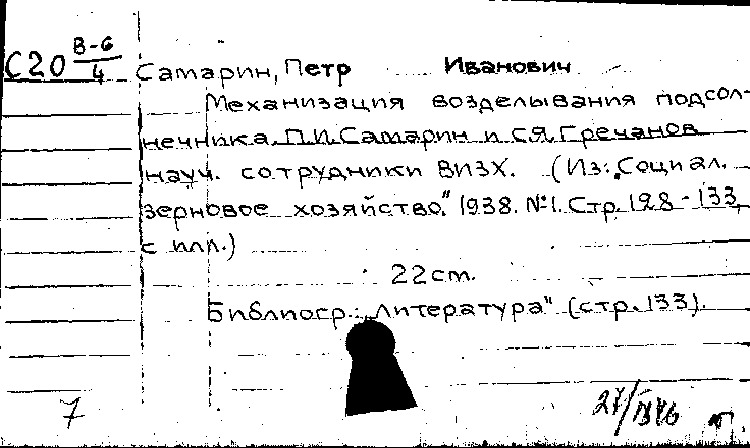 С20 В-6/4
Самарин, Петр Иванович
Механизация возделывания подсол-
нечника. П.И. Самарин и С.Я. Гречанов
науч. сотрудники ВИЗХ. (Из: „Социал.
зерновое хозяйство." 1938. №1. Стр. 128-133,
с илл.)
22 cm.
Библиогр.: „Литература" (стр. 133).
7